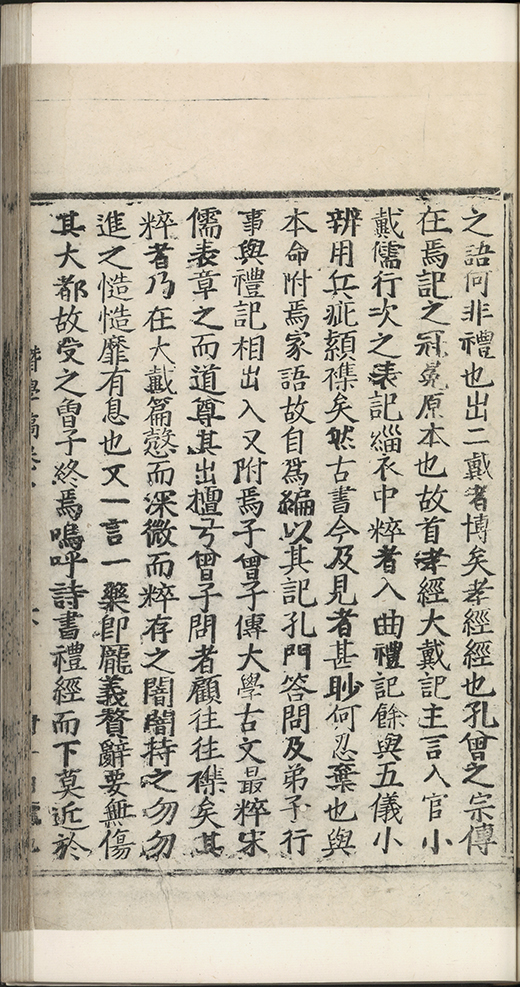 之語何非禮也出二戴者博矣孝經經也孔曾之宗傳
在焉記之冠冕原本也故首孝經大戴記主言入官小
戴儒行次之表記緇衣中粹者入曲禮記餘與五儀小
辨用兵疵纇襍矣然古書今及見者甚眇何忍棄也與
本命附焉家語故自為編以其記孔門答問及弟子行
事與禮記相出入又附焉子曾子傳大學古文最粹宋
儒表章之而道尊其出檀弓曾子問者顧往往襍矣其
粹者乃在大戴篇愨而深微而粹存之闇闇持之勿勿
進之慥慥靡有息也又一言一藥即龐義贅辭要無傷
其大都故受之曾子終焉嗚呼詩書禮經而下莫近於